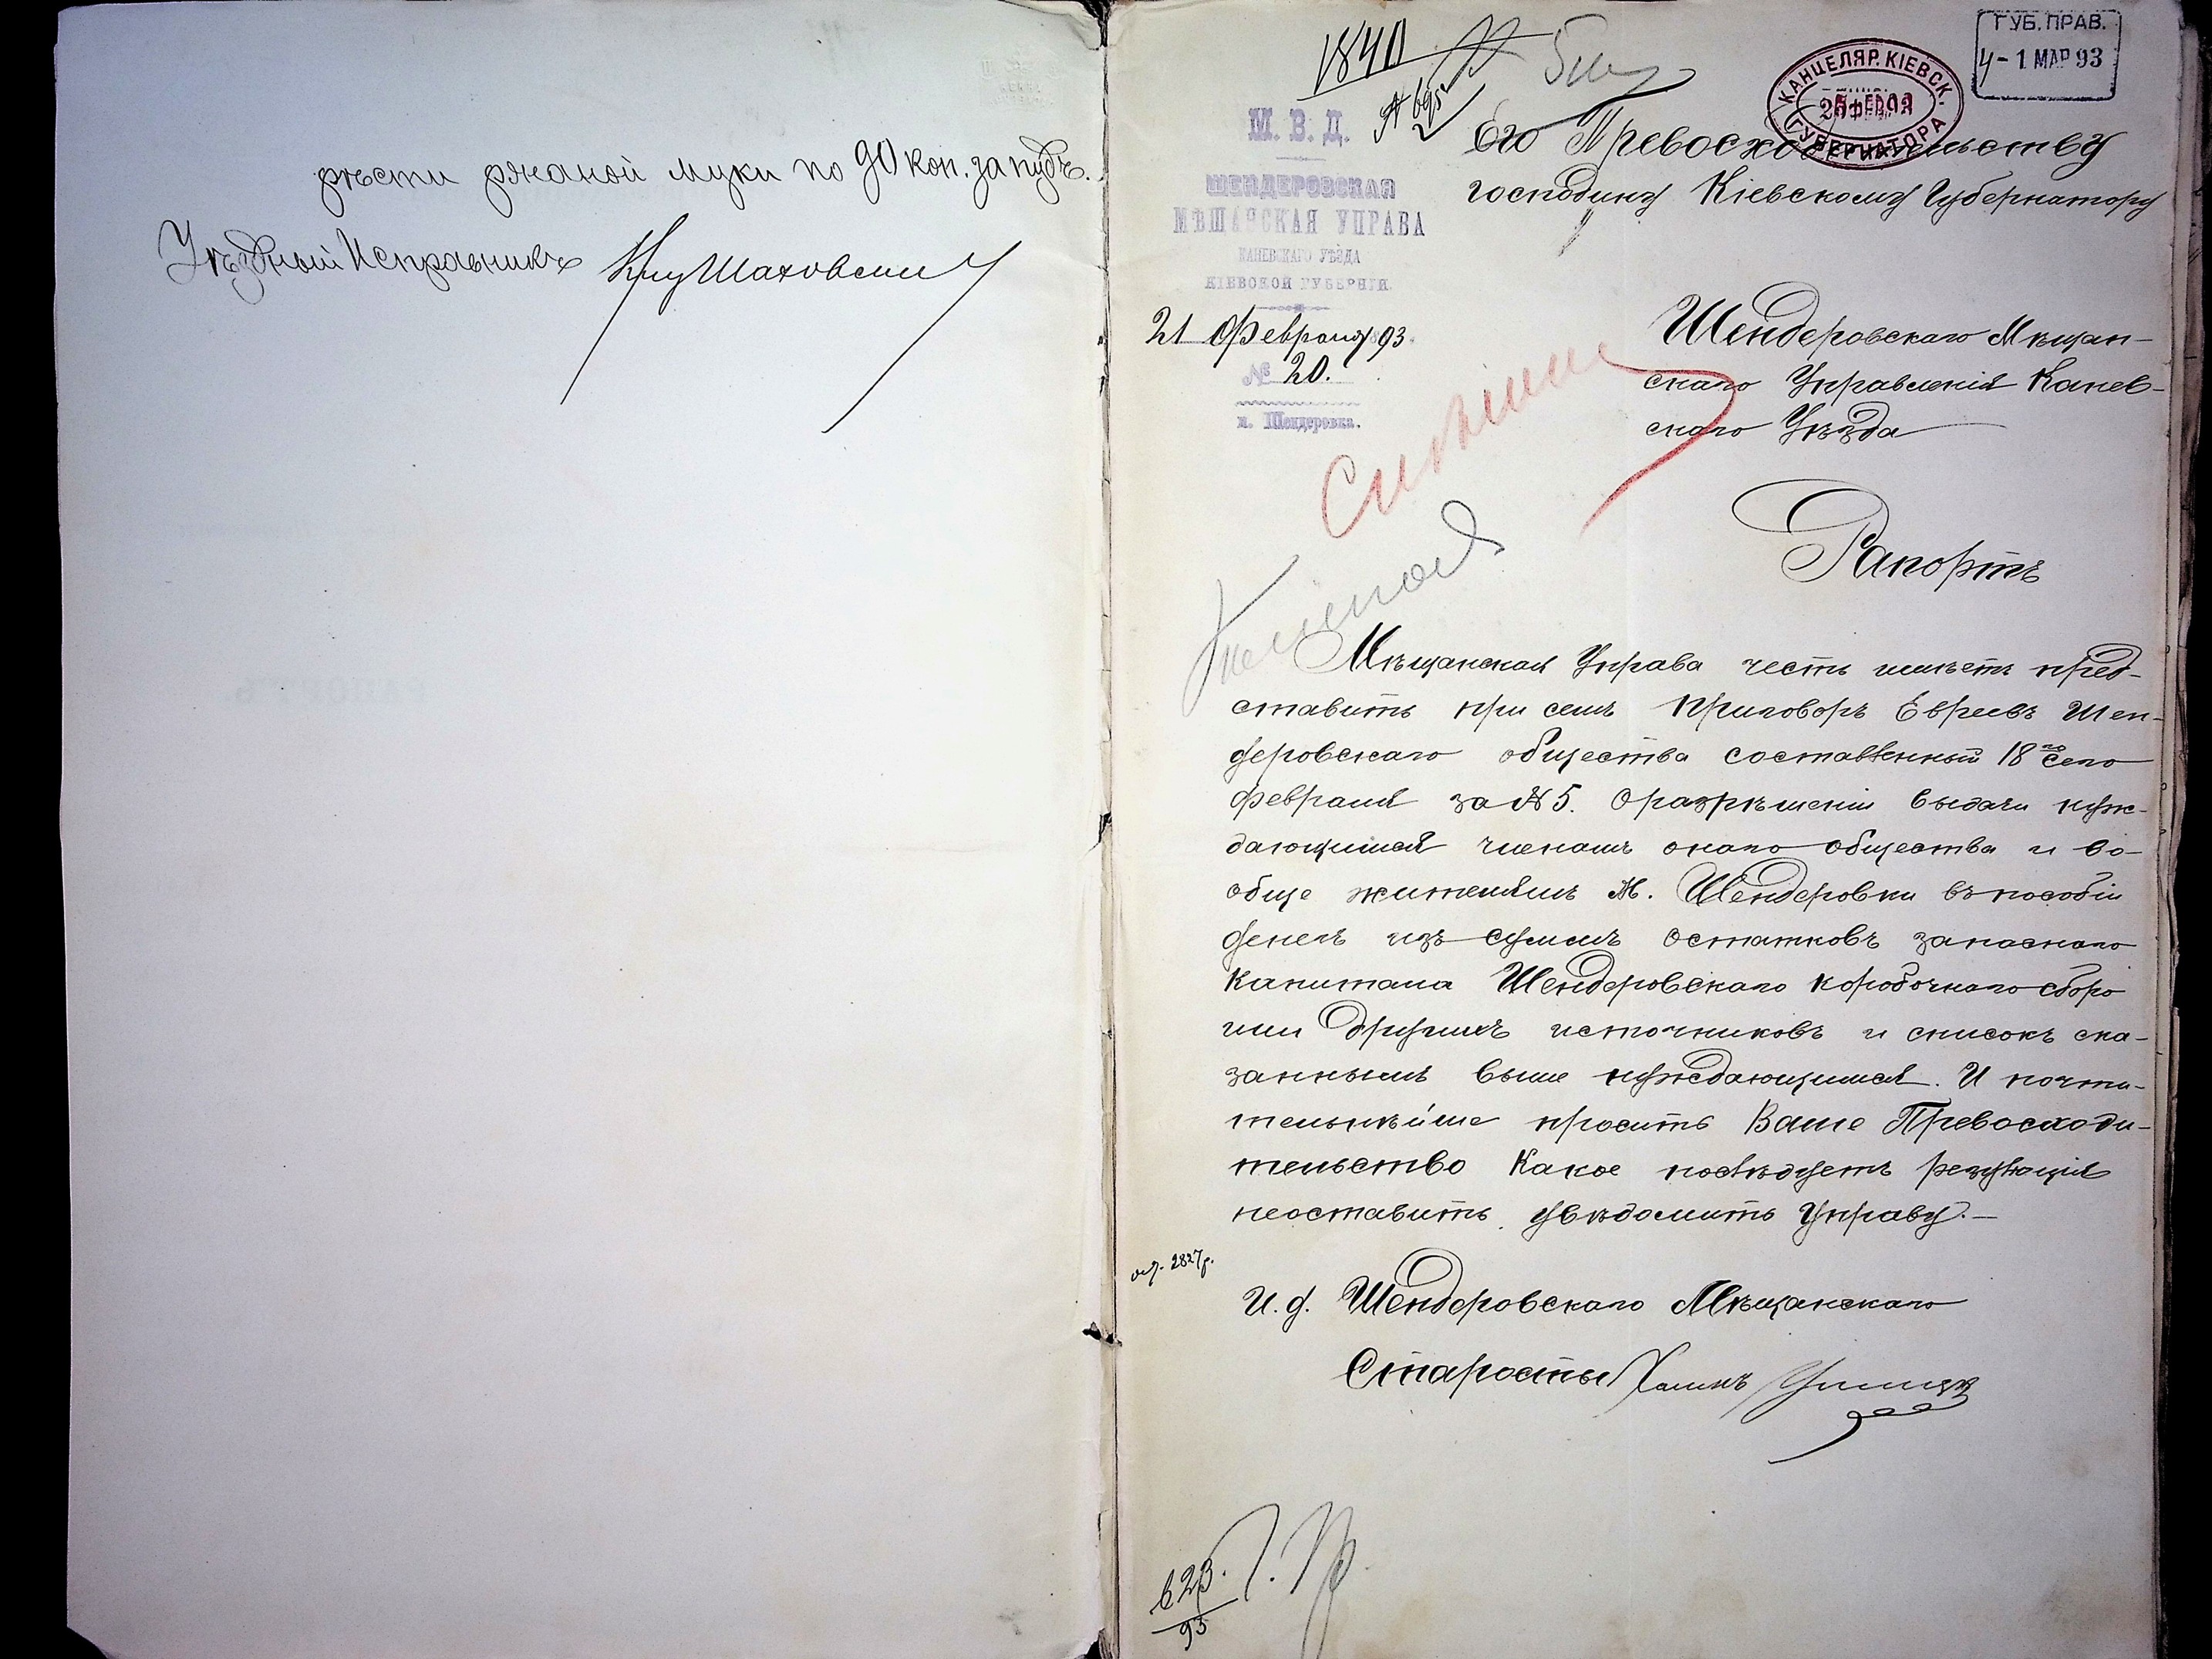 рѣсти ржаной муки по 90 коп. за пудъ.
Уѣздный Исправникъ Кн Шаховской
1840
№ 695
ГУБ. ПРАВ.
4 - 1 МАР 93
КАНЦЕЛЯР. КІЕВСК. ГУБЕРНАТОРА
М. В. Д.
ШЕНДЕРОВСКАЯ
МѢЩАНСКАЯ УПРАВА
КАНЕВСКАГО УѢЗДА
КІЕВСКОЙ ГУБЕРНІИ.
21 Февраля 1893.
№ 20.
м. Шендеровка.
Его Превосходительству
господину Кіевскому Губернатору
Шендеровскаго Мѣщан-
скаго Управленія Канев-
скаго Уѣзда
Рапортъ
Мѣщанская Управа честь имѣетъ пред-
ставить при семъ приговоръ Евреевъ Шен-
деровскаго общества составленный 18го сего
февраля за № 5. О разрѣшеніи выдачи нуж-
дающимся членамъ онаго общества и во-
обще жителямъ М. Шендеровки въ пособіи
денегъ изъ суммъ остатковъ запаснаго
Капитала Шендеровскаго коробочнаго сборо
или другихъ источниковъ и списокъ ска-
занныхъ выше нуждающимся. И почти-
тельнѣйше проситъ Ваше Превосходи-
тельство Какое послѣдуетъ резулюція
неоставить увѣдомить Управу.—
ост. 2827 р.
И. д. Шендеровскаго Мѣщанскаго
Старосты Хаимъ
623
93
Г. Пр.